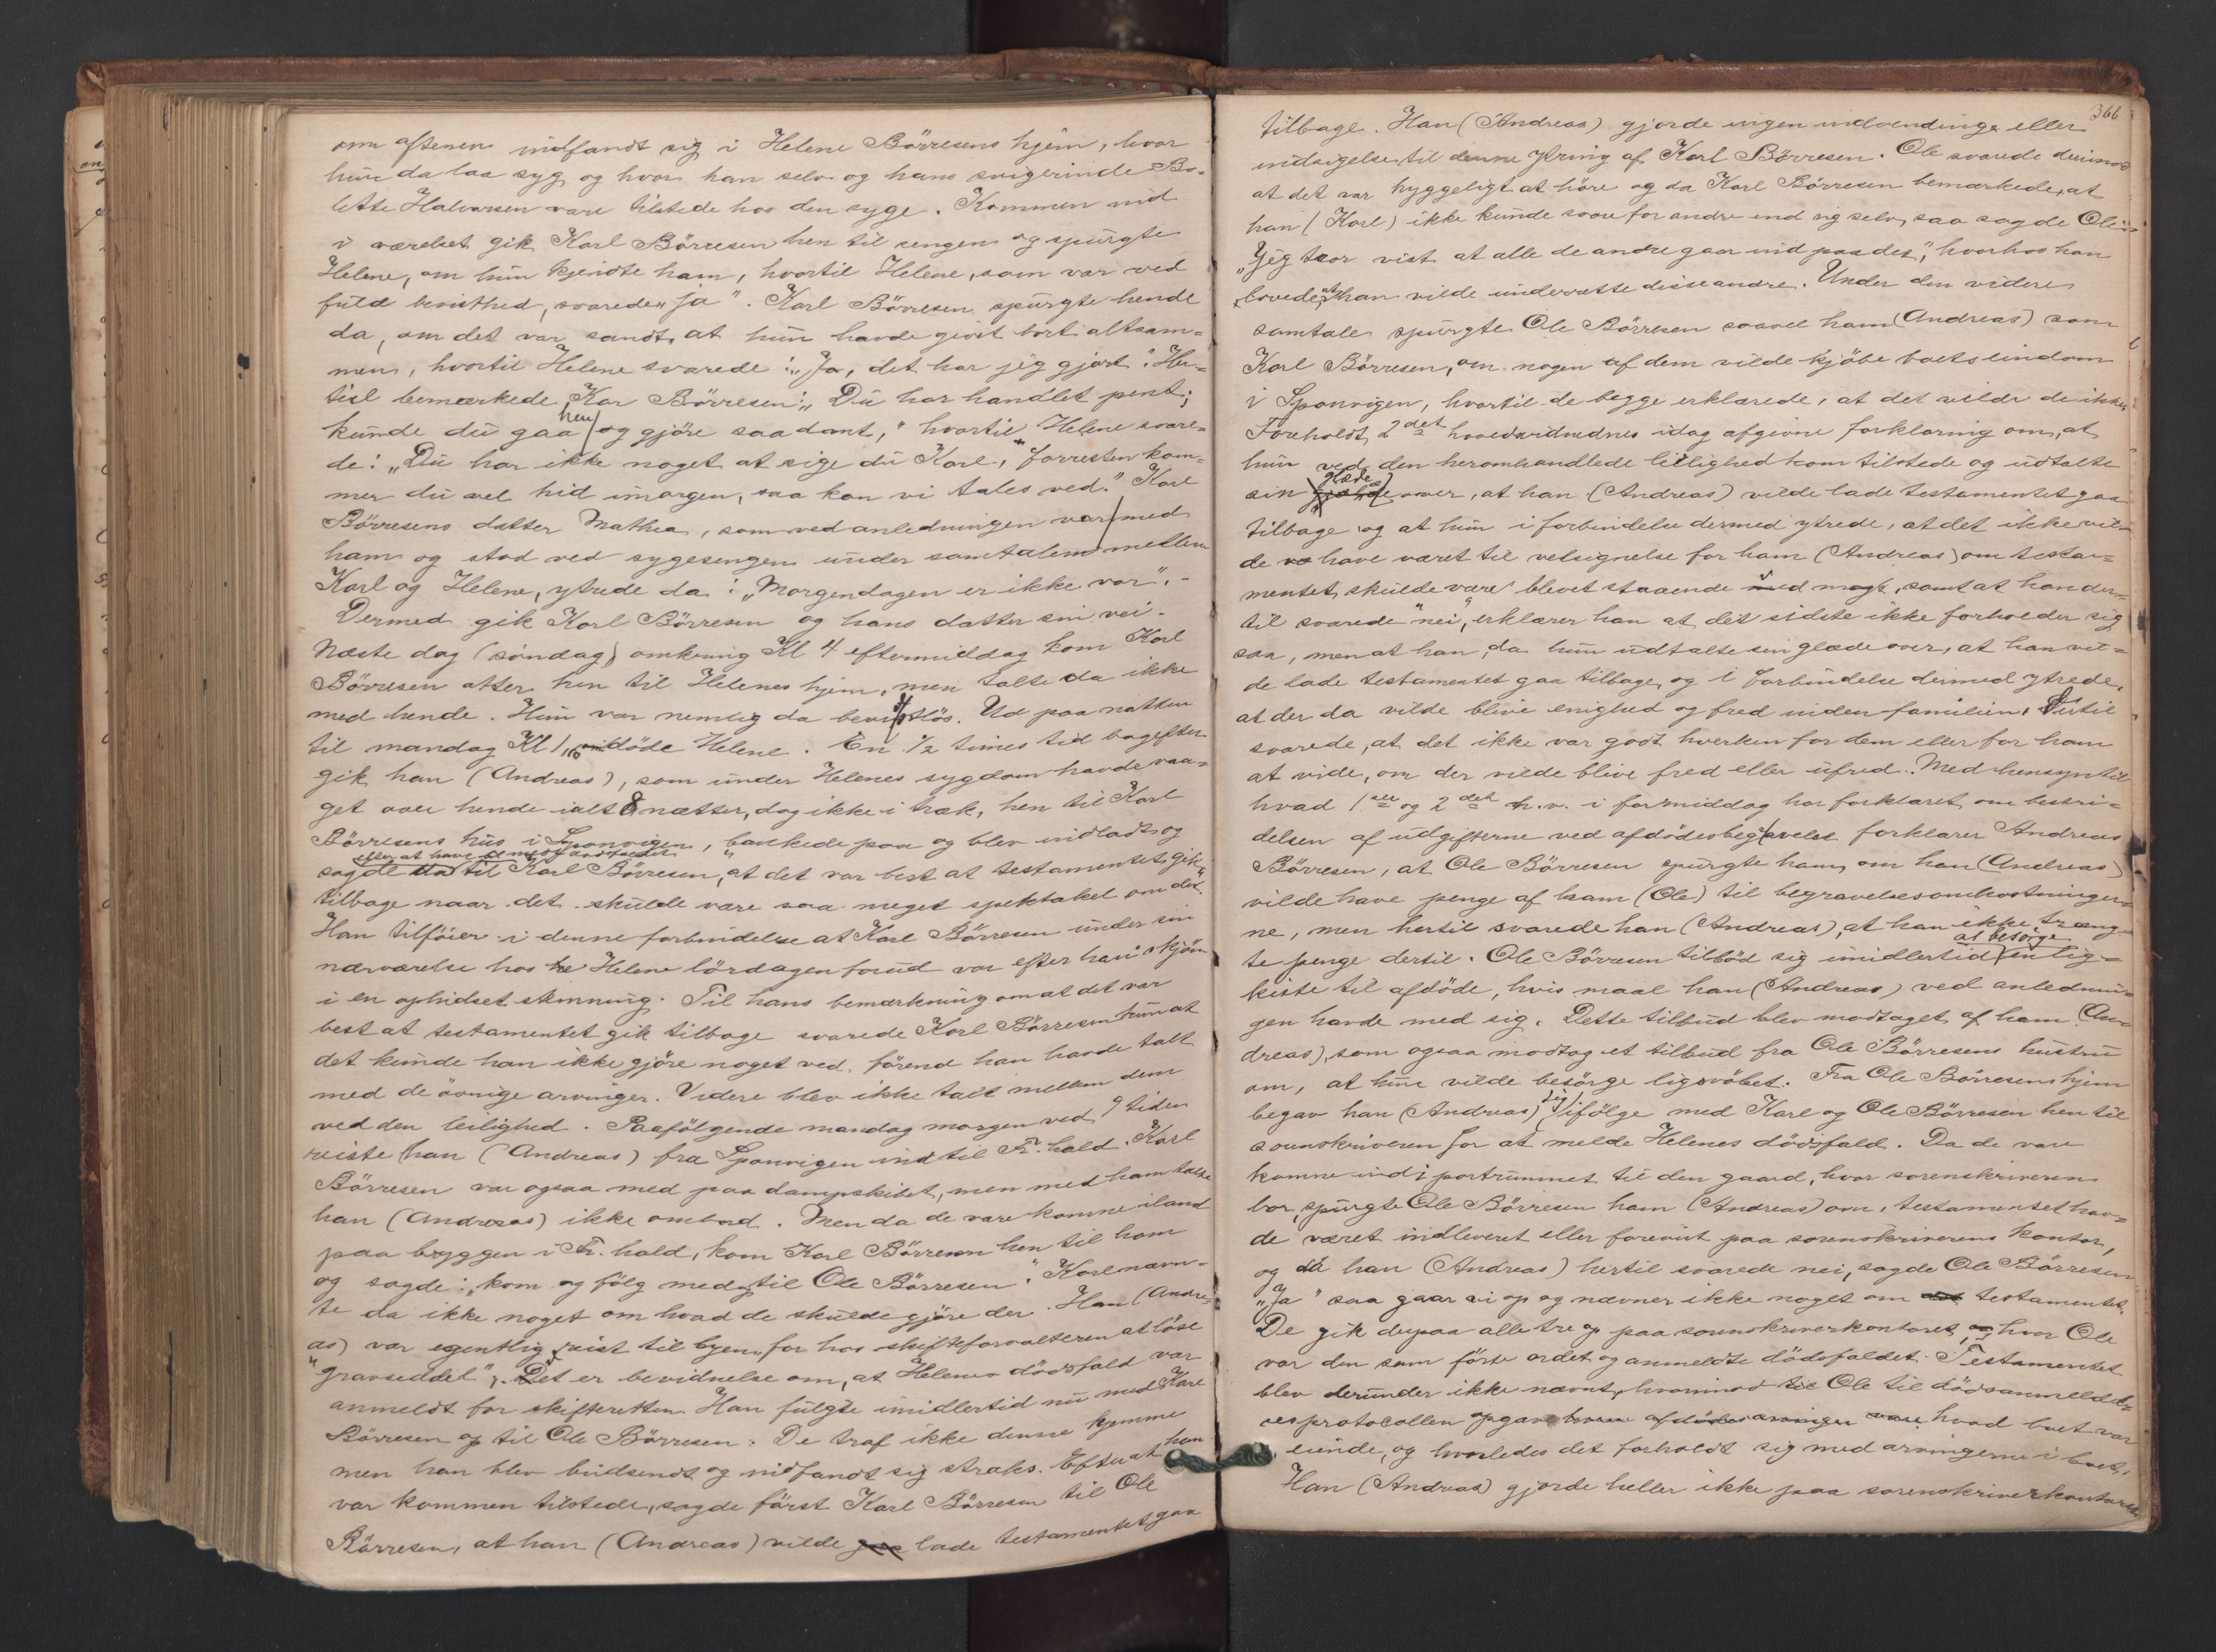 om aftenen indfandt sig i Helene Börresens hjem, hvor
hun da laa syg og hvor han selv og hans svigerinde Bo-
lette Halvorsen vare tilstede hos den syge. Kommen ind
i værelset gik Karl Börresen hen til sengen og spurgte
Helene, om hun kjendte ham, hvortil Helene, som var ved
fuld bevisthed, svarede „ja". Karl Börresen spurgte hende
da, om det var sandt, at hun havde givet bort altsam-
men, hvortil Helene svarede: „Ja, det har jeg gjort". Her-
til bemærkede Kar Börresen: „Du har handlet pent;
kunde du gaa hen og gjöre saadant," hvortil Helene svare-
de: „Du har ikke noget at sige du Karl," forresten kom-
mer du vel hid imorgen, saa kan vi tales ved." Karl
Börresens datter Mathea, som ved anledningen var med
ham og stod ved sygesengen under samtalen mellem
Karl og Helene, ytrede da: „Morgendagen er ikke vor". -
Dermed gik Karl Börresen og hans datter sin vei.
Næste dag (söndag) omkring Kl 4 eftermiddag kom Karl
Börresen atter hen til Helenes hjem, men talte da ikke
med hende. Hun var nemlig da bevistlös. Ud paa natten
til mandag Kl 1, döde Helene. En ½ times tid bagefter
gik han (Andreas), som under Helenes sygdom havde vaa-
get over hende ialt 8 nætter, dog ikke i træk, hen til Karl
Börresens hus i Sponvigen, bankede paa og blev indladt og
efter at have
sagde da til Karl Börresen, „at det var best at testamentet gik
tilbage naar det skulde være saa meget spektakel om det".
Han tilföier i denne forbindelse at Karl Börresen under sin
nærværelse hos he Helene lördagen forud var efter hans skjön
i en ophidset stemning. Til hans bemærkning om at det var
best at testamentet gik tilbage svarede Karl Börresen kun at
det kunde han ikke gjöre noget ved, förend han havde talt
med de övrige arvinger. Videre blev ikke talt mellem dem
ved den leilighed. Paafölgende mandag morgen ved 9 tiden
reiste han (Andreas) fra Sponvigen ind til Fr.hald. Karl
Börresen var ogsaa med paa dampskibet, men med ham talte
han (Andreas) ikke ombord. Men da de vare komne iland
paa bryggen i Fr.hald, kom Karl Börresen hen til ham
og sagde: „kom og fölg med til Ole Börresen". Karl nævn-
te da ikke noget om hvad de skulde gjöre der. Han (Andre-
as) var egentlig reist til byen for hos skifteforvalteren at löse
"gravseddel", Det er bevidnelse om, at Helenes dödsfald var
anmeldt for skifteretten. Han fulgte imidlertid nu med Karl
Börresen op til Ole Börresen. De traf ikke denne hjemme
men han blev budsendt og indfandt sig straks. Efterat han
var kommen tilstede, sagde först Karl Börresen til Ole
Börresen, at han (Andreas) vilde lade testamentet gaa
366
tilbage. Han (Andreas) gjorde ingen indvendinge eller
indsigelse til denne ytring af Karl Börresen. Ole svarede derimod
at det var hyggeligt at höre og da Karl Börresen bemærkede, at
han (Karl) ikke kunde svare for andre end sig selv, saa sagde Ole:
„Jeg tror vist at alle de andre gaar ind paa det", hvorhos han
lovede, at han vilde underrette disse andre. Under den videre
samtale spurgte Ole Börresen saavel ham (Andreas) som
Karl Börresen, om nogen af dem vilde kjöbe boets eiendom
i Sponvigen, hvortil de begge erklærede, at det vilde de ikke.
Foreholdt 2det hovedvidnes idag afgivne forklaring om, at
hun ved den heromhandlede leilighed kom tilstede og udtalte
sin glæde over, at han (Andreas) vilde lade testamentet gaa
tilbage og at hun i forbindelse dermed ytrede, at det ikke vil-
de have været til velsignelse for ham (Andreas) om testa-
mentet skulde være blevet staaende ved magt, samt at han der-
til svarede "nei", erklærer han at det sidste ikke forholder sig
saa, men at han, da hun udtalte sin glæde over, at han vil-
de lade testamentet gaa tilbage, og i forbindelse dermed ytrede,
at der da vilde blive enighed og fred inden familien, dertil
svarede, at det ikke var godt hverken for dem eller for ham
at vide, om der vilde blive fred eller ufred. Med hensyn til
hvad 1ste og 2det h.v. i formiddag har forklaret om bestri-
delsen af udgifterne ved afdödes begravelse forklarer Andreas
Börresen, at Ole Börresen spurgte ham, om han (Andreas)
vilde have penge af ham (Ole) til begravelsesomkostninger-
ne, men hertil svarede han (Andreas), at han ikke træng-
te penge dertil. Ole Börresen tilböd sig imidlertid at besörge en lig-
kiste til afdöde, hvis maal han (Andreas) ved anlednin-
gen havde med sig. Dette tilbud blev modtaget af ham (An-
dreas), som ogsaa modtog et tilbud fra Ole Börresens hustru
om, at hun vilde besörge ligsvöbet. Fra Ole Börresens hjem
begav han (Andreas) sig ifölge med Karl og Ole Börresen hen til
sorenskriveren for at melde Helenes dödsfald. Da de vare
komne ind i portrummet til den gaard, hvor sorenskriveren
bor, spurgte Ole Börresen ham (Andreas) om, testamentet hav-
de været indleveret eller forevist paa sorenskriverens kontor,
og da han (Andreas) hertil svarede nei, sagde Ole Börresen
„Ja" saa gaar vi op og nævner ikke noget om testamentet.
De gik derpaa alle tre op paa sorenskriverkontoret, hvor Ole
var den som förte ordet og anmeldte dödsfaldet. Testamentet
blev derunder ikke nævnt, hvorimod Ole til dödsanmeldel-
sesprotocollen opgav hvem afdödes arvinger vare hvad boet var
eiende, og hvorledes det forholdt sig med arvingerne i boet.
Han (Andreas) gjorde heller ikke paa sorenskriverkontoret